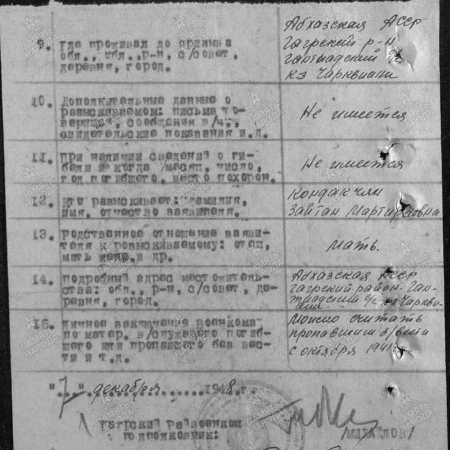 9. где проживал до призыва
обл., р-н, с/совет,
деревня, город.
Абхазская АССР
Гагрский р-н
к-з Чарквиани
10. Дополнительные данные о
разыскиваемом: письма то-
варищей, сообщения в/ч,
свидетельские показания и.д.
Не имеется
11. при наличии сведений о ги-
бели и когда /месяц, число,
год погибшего, место похорон.
Не имеется
12. кто разыскивает: фамилия,
имя, отчество заявителя.
Кондакчян
Зайтан Мартиросовна
13. Родственное отношение заяви-
теля к разыскиваемому: отец,
мать жена и др.
мать.
14. подробный адрес местожитель-
ства: обл., р-н, с/совет, де-
ревня, город.
Абхазская АССР
Гагрский район
15. личное заключение военкома
по матер. в/служащего погиб-
шего или пропавшего без вес-
ти и т.д.
Можно считать
пропавшим б/вести
с октября 1941
"7" декабря 1948 г.
Гагрский райвоенком
подполковник:
/МИХАЙЛОВ/